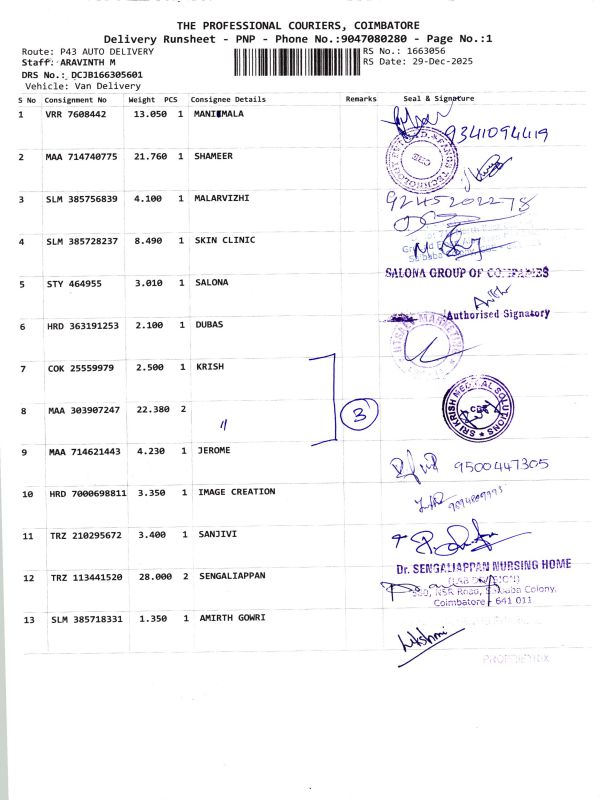 THE PROFESSIONAL COURIERS, COIMBATORE
Delivery Runsheet - PNP - Phone No.:9047080280 - Page No.:1
Route: P43 AUTO DELIVERY
RS No.: 1663056
Staff: ARAVINTH M
RS Date: 29-Dec-2025
DRS No.: DCJB166305601
Vehicle: Van Delivery
S No Consignment No Weight PCS Consignee Details Remarks Seal & Signature
1 VRR 7608442 13.050 1 MANIMALA
9341094419
2 MAA 714740775 21.760 1 SHAMEER
3 SLM 385756839 4.100 1 MALARVIZHI
9245202278
4 SLM 385728237 8.490 1 SKIN CLINIC
SALONA GROUP OF COMPANIES
5 STY 464955 3.010 1 SALONA
Authorised Signatory
6 HRD 363191253 2.100 1 DUBAS
7 COK 25559979 2.500 1 KRISH
SRI KRISH MEDICAL SOLUTIONS
CBE
8 MAA 303907247 22.380 2 "
3
9 MAA 714621443 4.230 1 JEROME
9500447305
10 HRD 7000698811 3.350 1 IMAGE CREATION
11 TRZ 210295672 3.400 1 SANJIVI
Dr. SENGALIAPPAN NURSING HOME
(LAB DIVISION)
12 TRZ 113441520 28.000 2 SENGALIAPPAN
NSR Road, Saibaba Colony,
Coimbatore - 641 011
13 SLM 385718331 1.350 1 AMIRTH GOWRI
Lakshmi
PROPRIETRIX